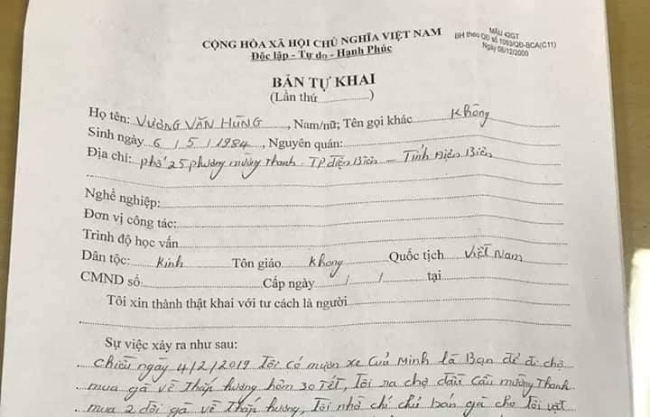 CỘNG HÒA XÃ HỘI CHỦ NGHĨA VIỆT NAM
Độc lập - Tự do - Hạnh Phúc
MẪU 42GT
BH theo QĐ số 1093/QĐ-BCA(C11)
Ngày 08/12/2000
BẢN TỰ KHAI
(Lần thứ ............)
Họ tên: VƯƠNG VĂN HÙNG, Nam/nữ; Tên gọi khác Không
Sinh ngày 6/5/1984, Nguyên quán:
Địa chỉ: phố 25 phường mường Thanh - TP điện Biên - Tỉnh Điện Biên
Nghề nghiệp:
Đơn vị công tác:
Trình độ học vấn
Dân tộc: Kinh Tôn giáo Không Quốc tịch Việt Nam
CMND số Cấp ngày / / tại
Tôi xin thành thật khai với tư cách là người
Sự việc xảy ra như sau:
chiều ngày 4/2/2019 Tôi có mượn xe Của Minh là Bạn để đi chợ
mua gà về Thắp hương hôm 30 TẾT, Tôi ra chợ đầu Cầu mường Thanh
mua 2 đôi gà về Thắp hương, Tôi nhờ chị chủ bán gà cho Tôi vặt